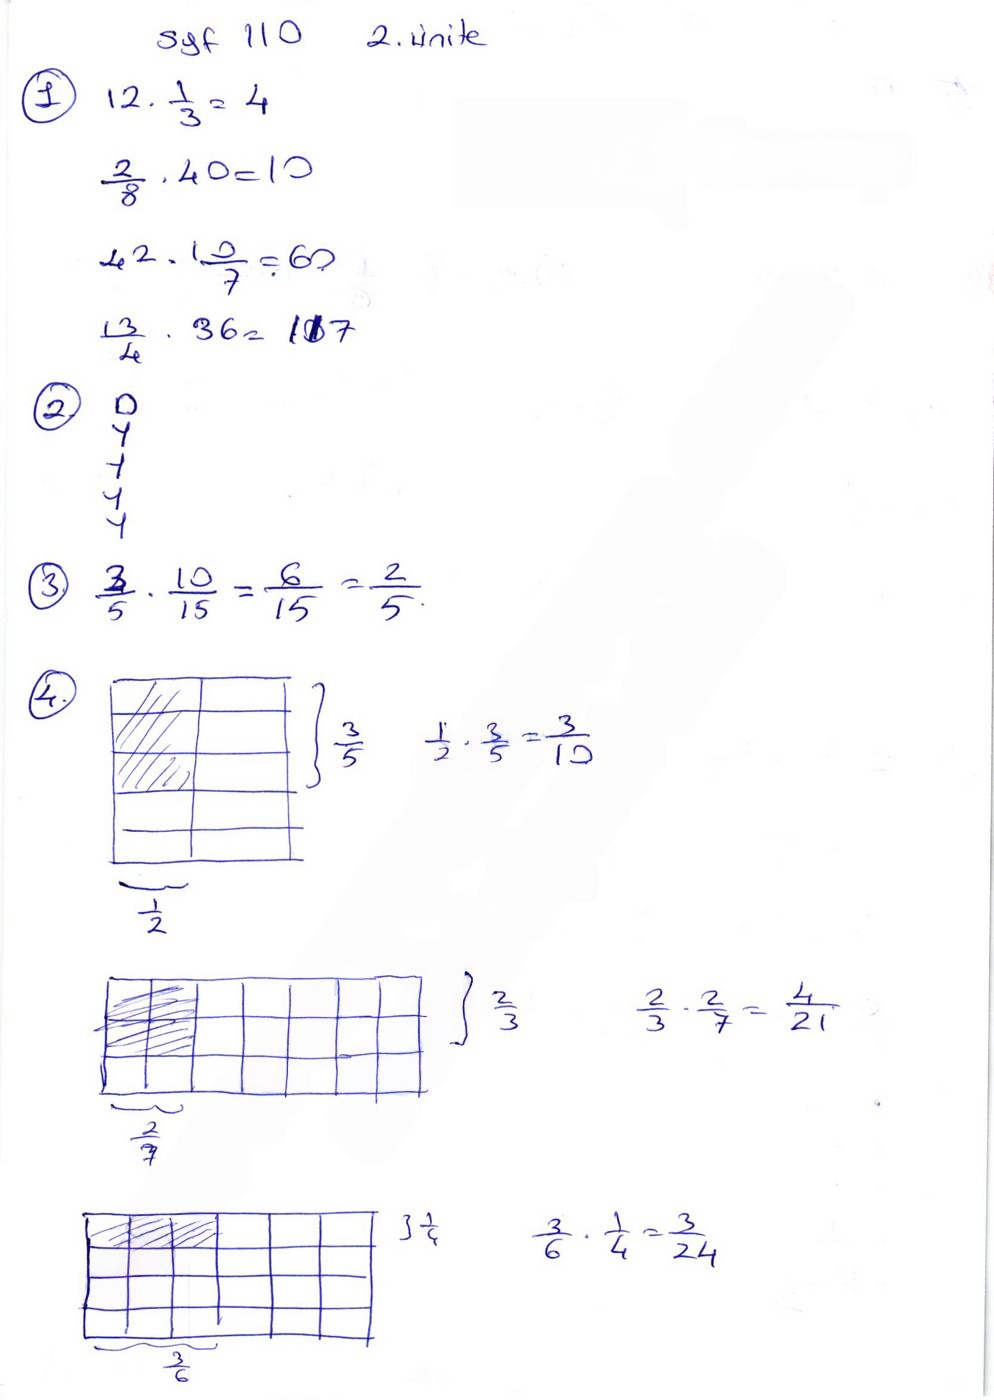 syf 110 2. ünite
1 12 . 1/3 = 4
2/8 . 40 = 10
42 . 10/7 = 60
13/4 . 36 = 117
2. D
Y
Y
Y
Y
3. 3/5 . 10/15 = 6/15 = 2/5.
4. 3/5 1/2 . 3/5 = 3/10
1/2
2/3 2/3 . 2/7 = 4/21
2/7
1/4 3/6 . 1/4 = 3/24
3/6